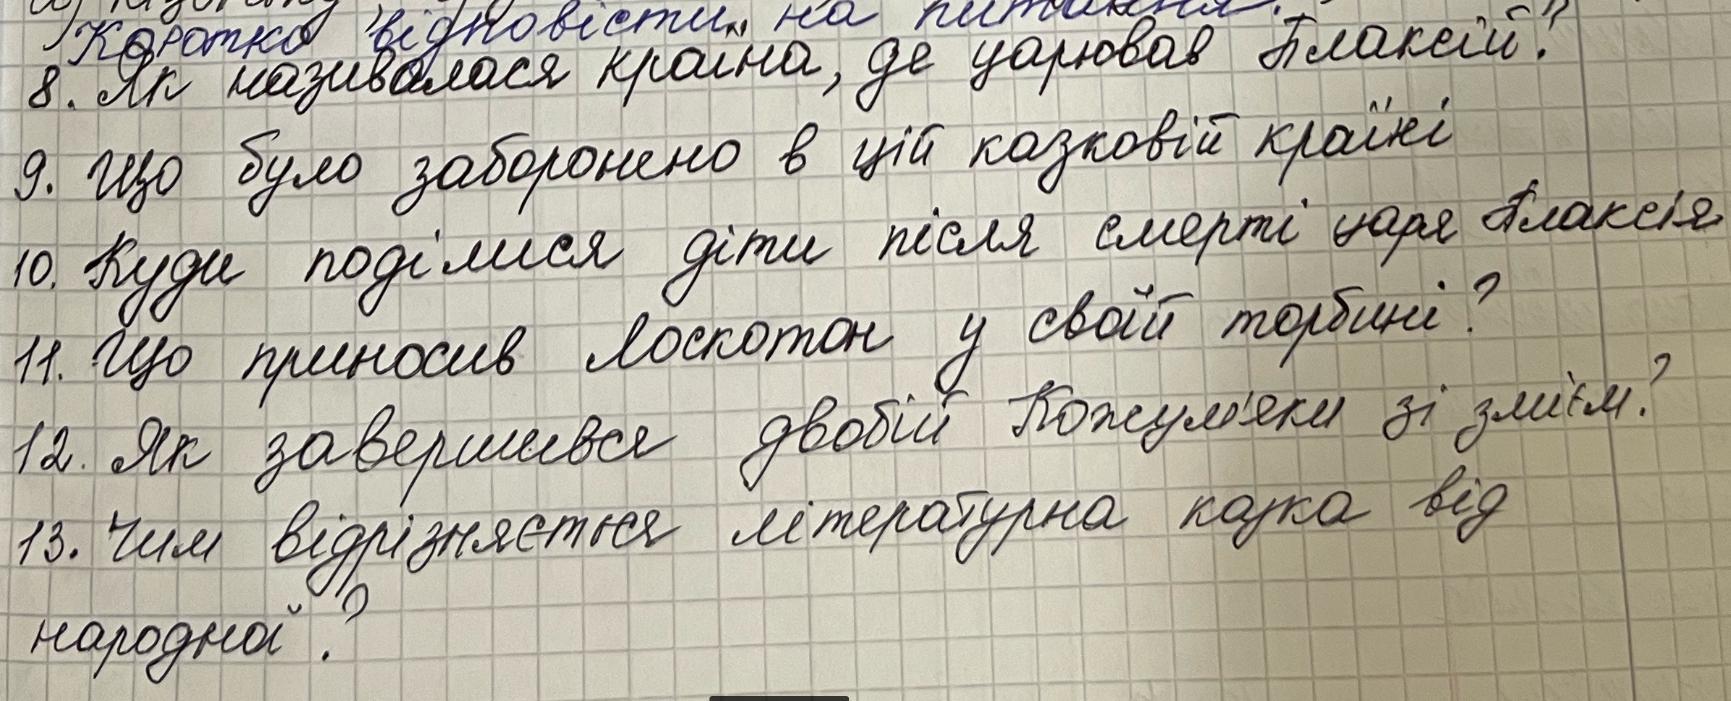 Коротко відповісти на питання:
8. Як називалася країна, де царював Плаксій?
9. Що було заборонено в цій казковій країні
10. Куди поділися діти після смерті царя Плаксія
11. Що приносив Лоскотон у своїй торбині?
12. Як завершився двобій Кожум'яки зі змієм?
13. Чим відрізняється літературна казка від
народної?